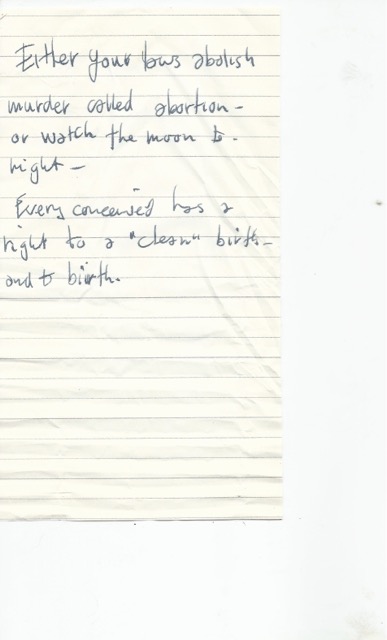 Either your laws abolish
murder called abortion -
or watch the moon to -
night -
Every conceived has a
right to a "clean" birth -
and to birth.